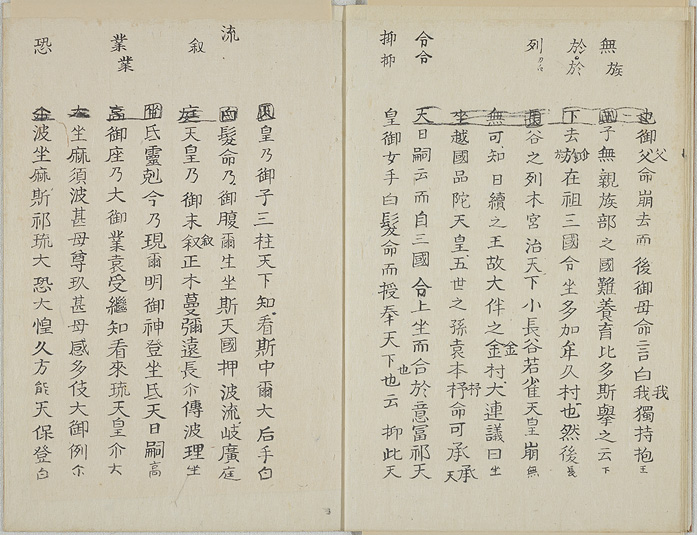 無族
於於
列
令令
抑抑
也御父命崩去而後御母命言白我獨持抱王
子無親族部之國難養育比多斯擧之云下
下去於在祖三國令坐多加牟久村也然後長
谷之列木宮治天下小長谷若雀天皇崩無
無可知日續之王故大伴之金村大連議曰坐
坐越國品陀天皇五世之孫袁本杼命可承天
天日嗣云而自三國令上坐而合於意富祁天
皇御女手白髮命而授奉天下也云 抑此天
流
叙
業業
恐
皇乃御子三柱天下知看斯中爾大后手白
白髮命乃御腹爾生坐斯天國押波流岐廣庭
庭天皇乃御末叙正木蔓彌遠長尓傳波理坐
氐靈剋今乃現爾明御神登坐氐天日嗣高
高御座乃大御業袁受繼知看來琉天皇尓大
大坐麻須波甚母尊玖甚母感多伎大御例尓
波坐麻斯祁琉大恐大惶久方能天保登白